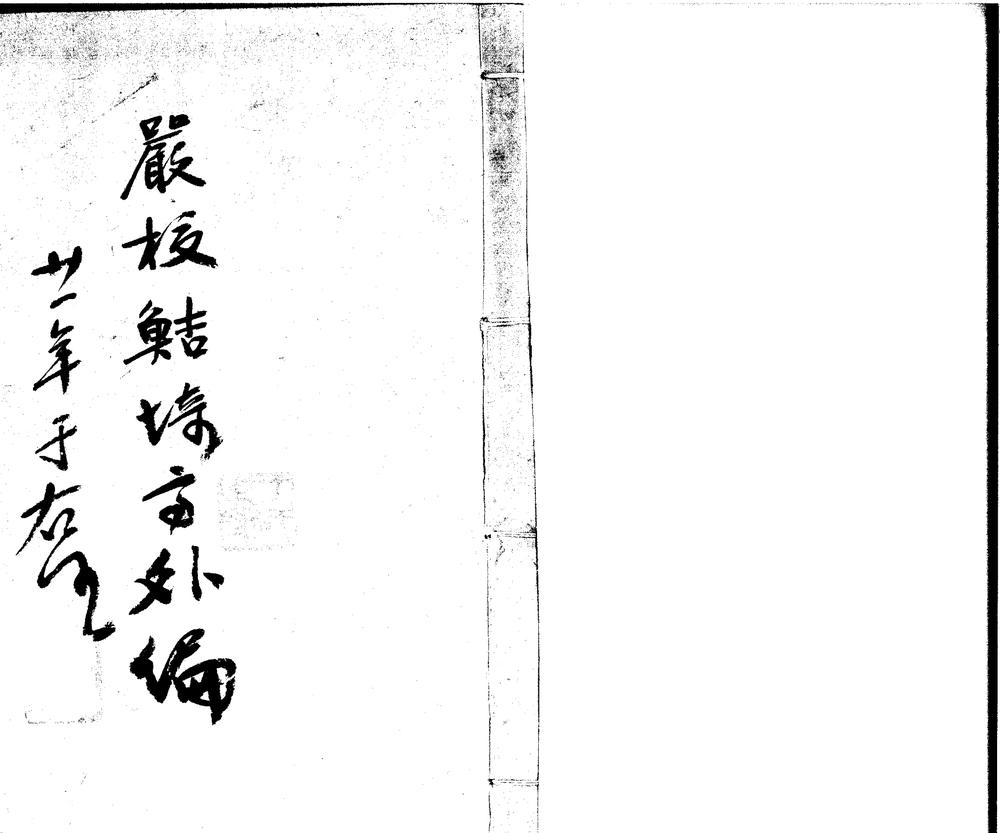 嚴校鮚埼亭外編
廿一年于右任